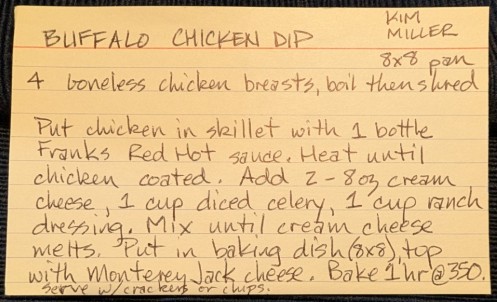 BUFFALO CHICKEN DIP
KIM
MILLER
8x8 pan
4 boneless chicken breasts, boil then shred
Put chicken in skillet with 1 bottle
Franks Red Hot sauce. Heat until
chicken coated. Add 2-8oz cream
cheese, 1 cup diced celery, 1 cup ranch
dressing. Mix until cream cheese
melts. Put in baking dish (8x8), top
with Monterey Jack cheese. Bake 1hr @350.
serve w/ crackers or chips.